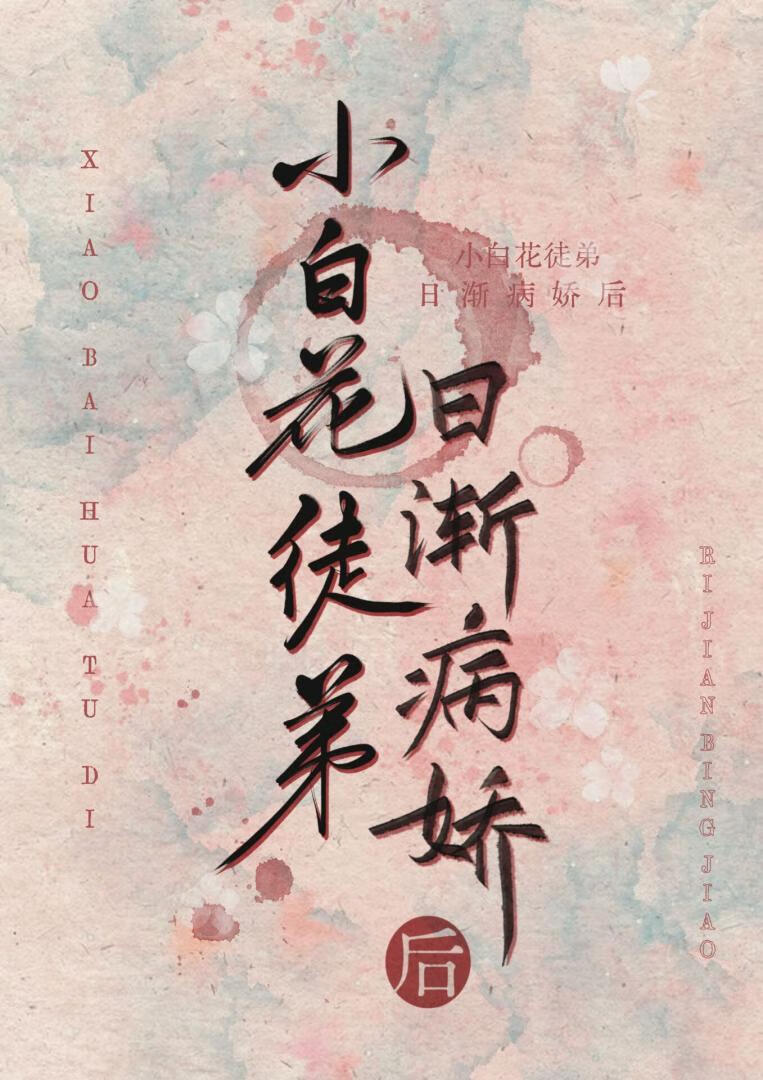 小白花徒弟
日渐病娇
后
小白花徒弟
日渐病娇后
XIAO BAI HUA TU DI
RI JIAN BING JIAO